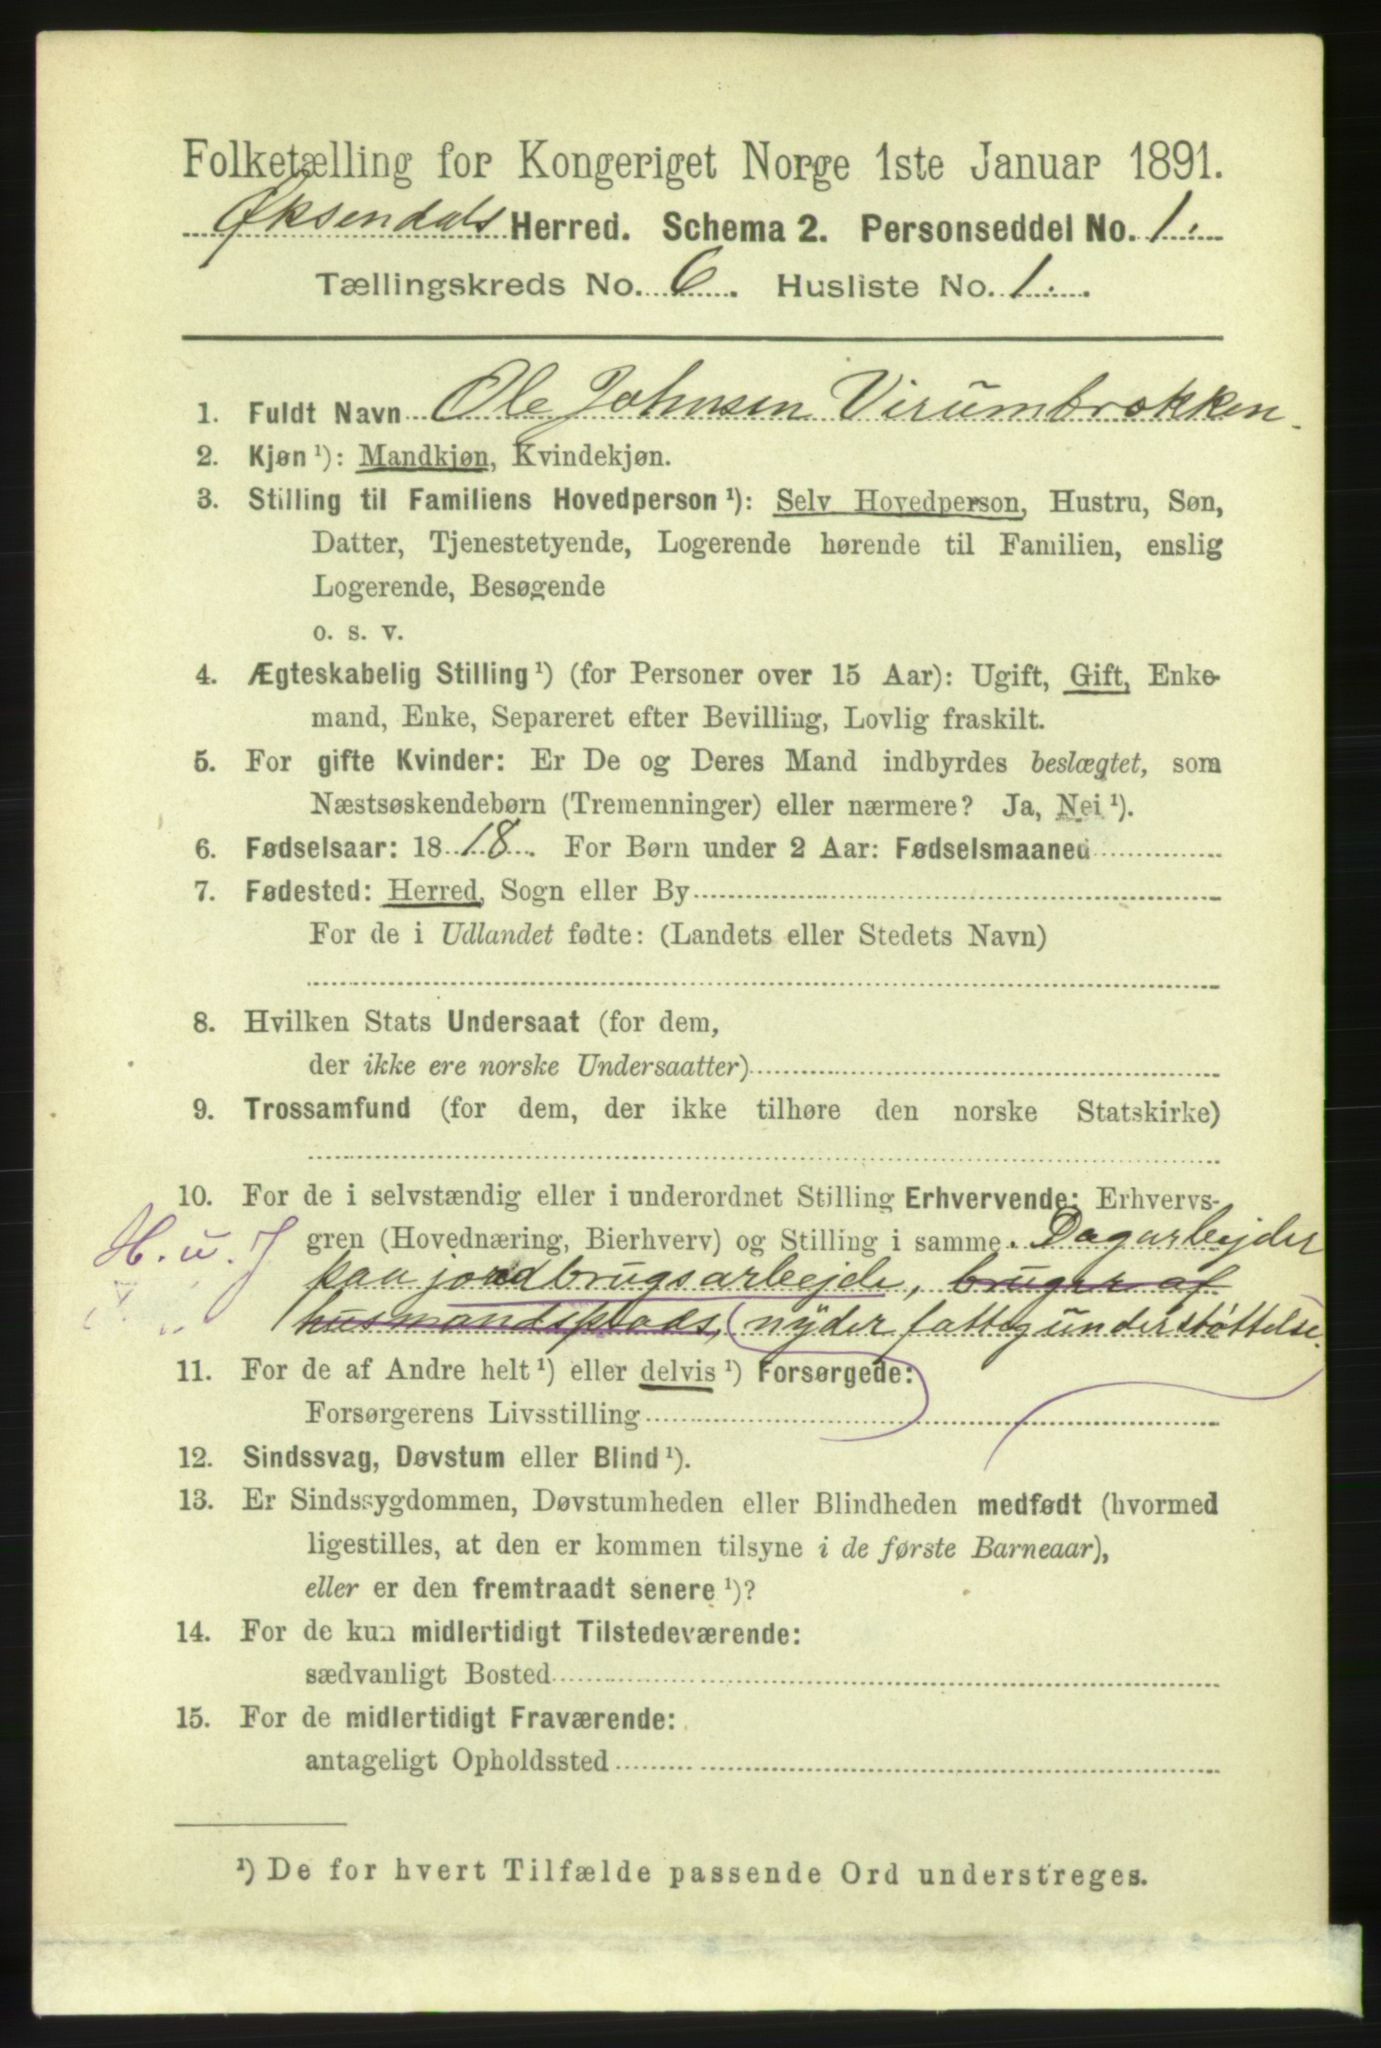 Folketælling for Kongeriget Norge 1ste Januar 1891.
Øksendals Herred. Schema 2. Personseddel No. 1.
Tællingskreds No. 6. Husliste No. 1.
1. Fuldt Navn Ole Johnsen Virumbrækken
2. Kjøn ¹): Mandkjøn, Kvindekjøn.
3. Stilling til Familiens Hovedperson ¹): Selv Hovedperson, Hustru, Søn,
Datter, Tjenestetyende, Logerende hørende til Familien, enslig
Logerende, Besøgende
o. s. v.
4. Ægteskabelig Stilling ¹) (for Personer over 15 Aar): Ugift, Gift, Enke-
mand, Enke, Separeret efter Bevilling, Lovlig fraskilt.
5. For gifte Kvinder: Er De og Deres Mand indbyrdes beslægtet, som
Næstsøskendebørn (Tremenninger) eller nærmere? Ja, Nei ¹).
6. Fødselsaar: 1818. For Børn under 2 Aar: Fødselsmaaned
7. Fødested: Herred, Sogn eller By
For de i Udlandet fødte: (Landets eller Stedets Navn)
8. Hvilken Stats Undersaat (for dem,
der ikke ere norske Undersaatter)
9. Trossamfund (for dem, der ikke tilhøre den norske Statskirke)
10. For de i selvstændig eller i underordnet Stilling Erhvervende: Erhvervs-
H. u. J gren (Hovednæring, Bierhverv) og Stilling i samme. Dagarbejder
paa jordbrugsarbejde, bruger af
husmandsplads, nyder fattigunderstøttelse.
11. For de af Andre helt ¹) eller delvis ¹) Forsørgede:
Forsørgerens Livsstilling
12. Sindssvag, Døvstum eller Blind ¹).
13. Er Sindssygdommen, Døvstumheden eller Blindheden medfødt (hvormed
ligestilles, at den er kommen tilsyne i de første Barneaar),
eller er den fremtraadt senere ¹)?
14. For de kun midlertidigt Tilstedeværende:
sædvanligt Bosted
15. For de midlertidigt Fraværende:
antageligt Opholdssted
¹) De for hvert Tilfælde passende Ord understreges.